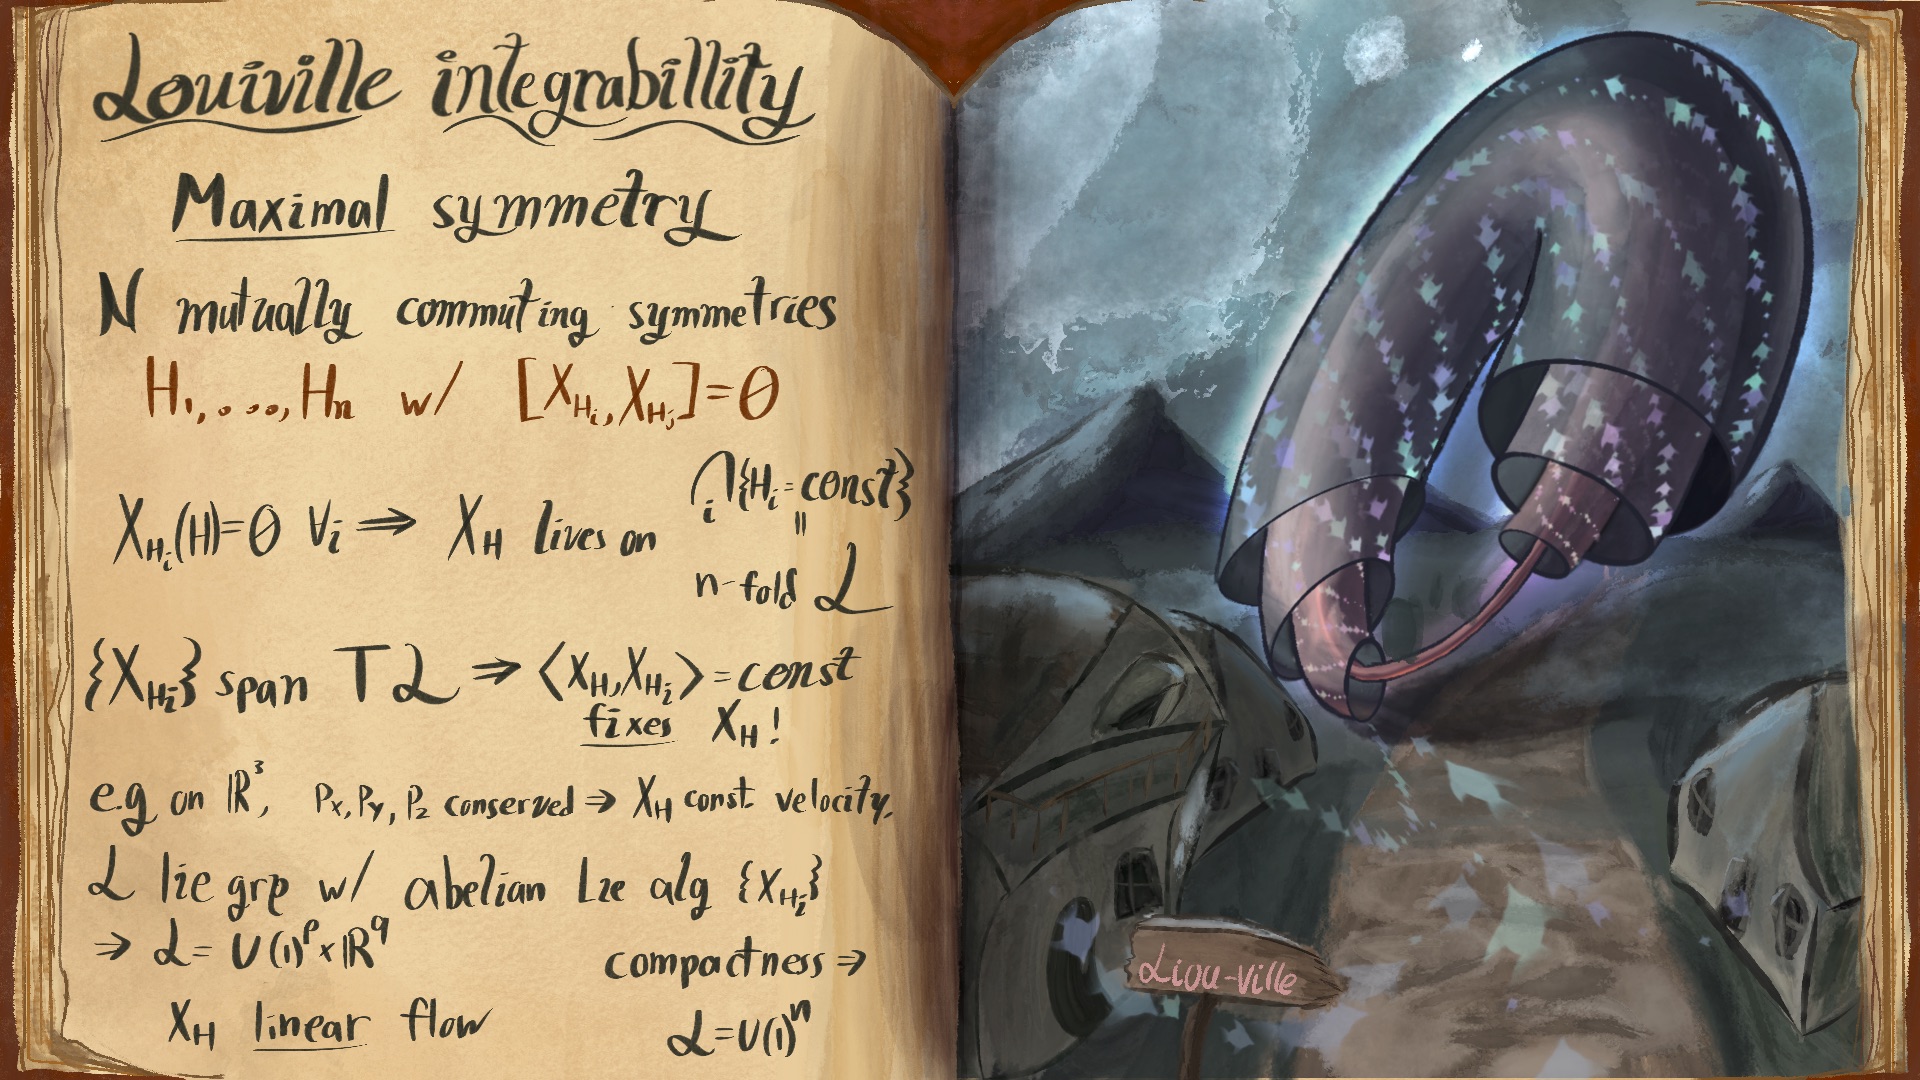 Louiville integrabillity
Maximal symmetry
N mutually commuting symmetries
H₁,...,Hₙ w/ [X_{H_i}, X_{H_j}]=0
X_{H_i}(H)=0 ∀i ⇒ X_H lives on ⋂_i{H_i=const}
=
n-fold L
{X_{H_i}} span TL ⇒ ⟨X_H,X_{H_i}⟩=const
fixes X_H!
e.g on ℝ³, P_x,P_y,P_z conserved ⇒ X_H const velocity.
L lie grp w/ abelian Lie alg {X_{H_i}}
⇒ L= U(1)^p×ℝ^q
compactness ⇒
X_H linear flow
L=U(1)^n
Liou-Ville